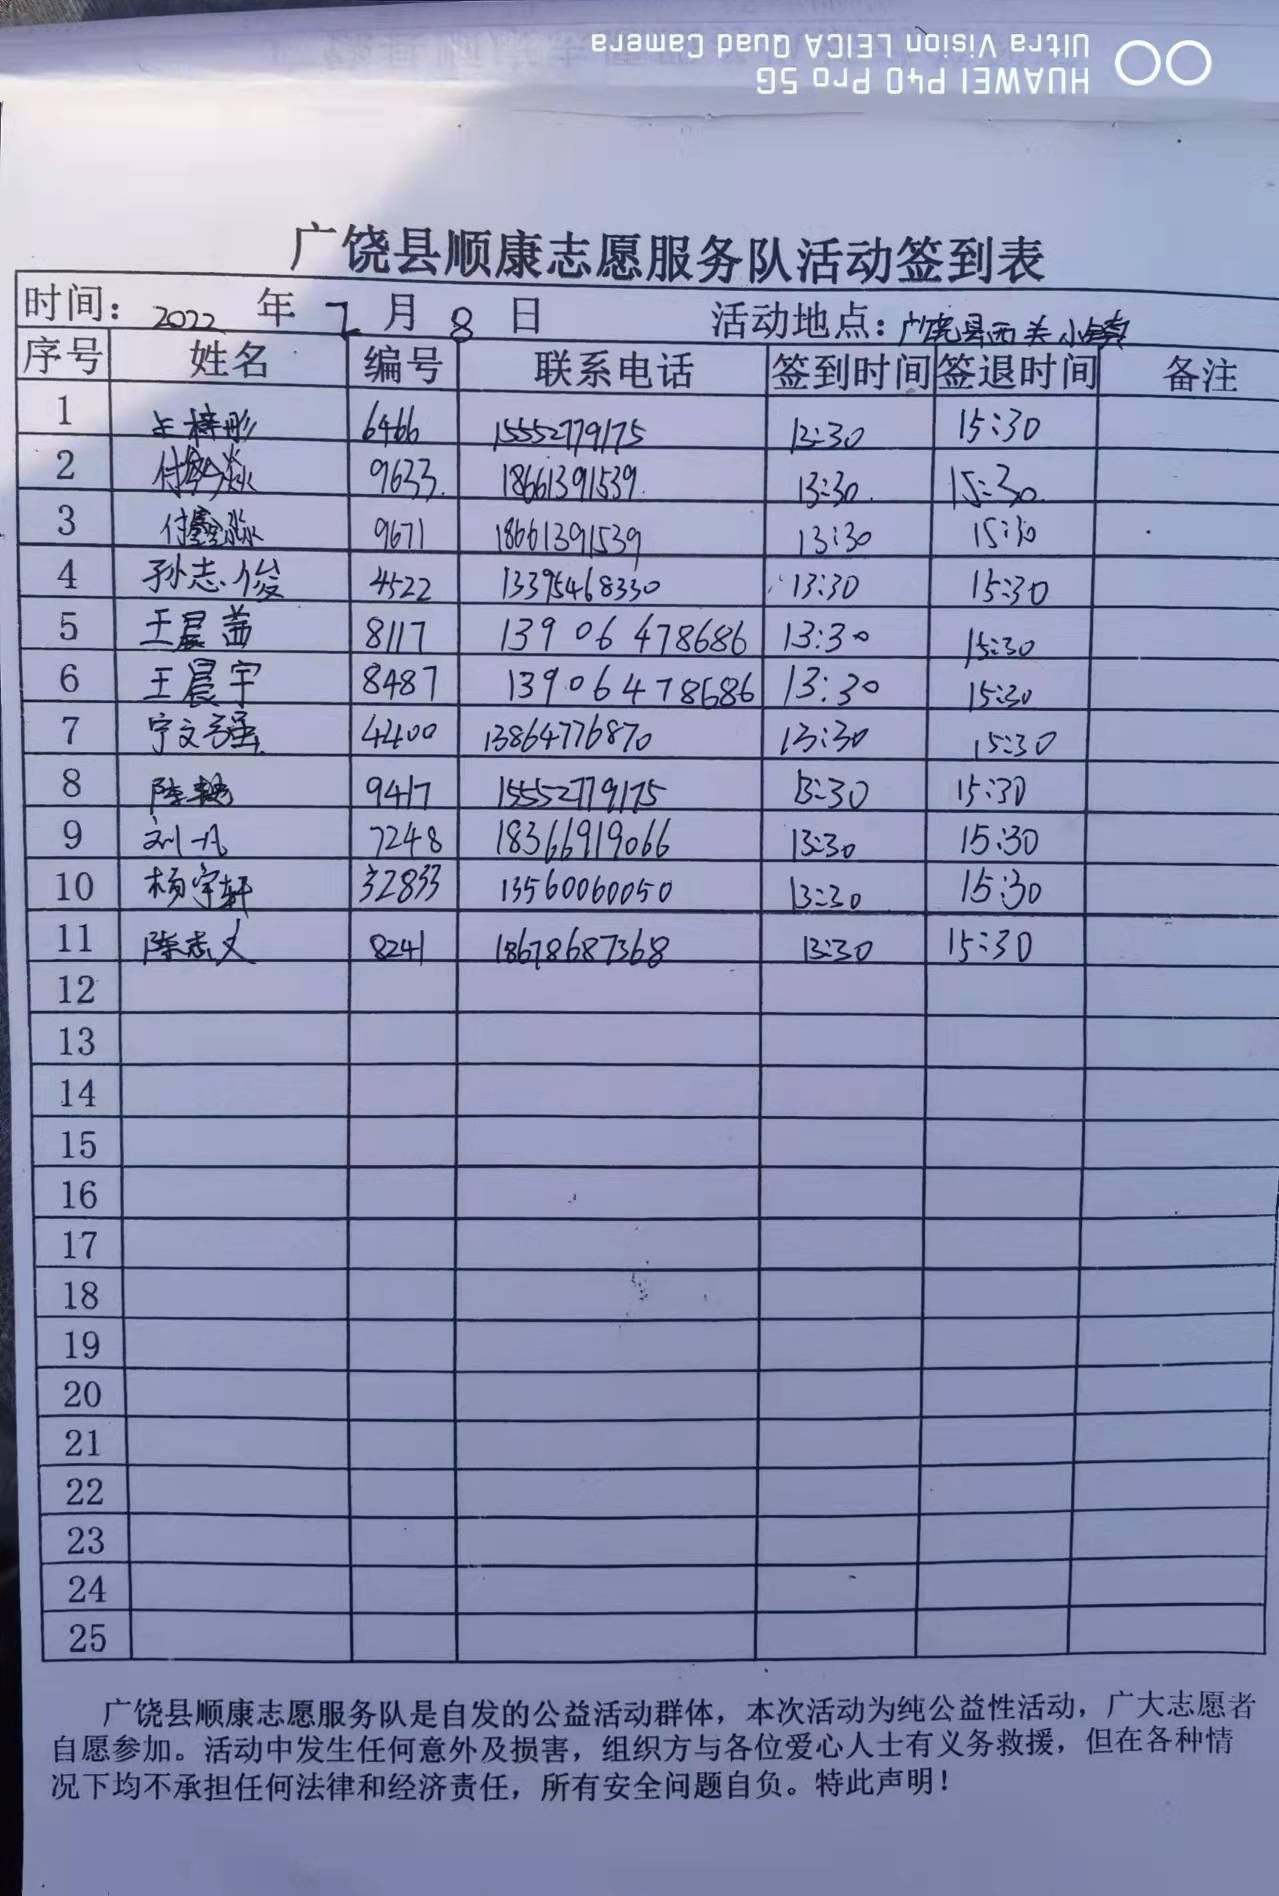 HUAWEI P40 Pro 5G
Ultra Vision LEICA Quad Camera
广饶县顺康志愿服务队活动签到表
时间: 2022 年 7 月 8 日 活动地点: 广饶县西关小镇
序号 姓名 编号 联系电话 签到时间 签退时间 备注
1 梓彤 6466 15552779175 13:30 15:30
2 付 9633 18661391539 13:30 15:30
3 付鑫淼 9671 18661391539 13:30 15:30
4 孙志俊 4522 13395468330 13:30 15:30
5 王晨 8117 13906478686 13:30 15:30
6 王晨宇 8487 13906478686 13:30 15:30
7 宁文强 4400 13864776870 13:30 15:30
8 陈 9417 15552779175 13:30 15:30
9 刘一凡 7248 18366919066 13:30 15:30
10 杨宇轩 32833 13560060050 13:30 15:30
11 陈志义 8241 18678687368 13:30 15:30
12
13
14
15
16
17
18
19
20
21
22
23
24
25
广饶县顺康志愿服务队是自发的公益活动群体，本次活动为纯公益性活动，广大志愿者
自愿参加。活动中发生任何意外及损害，组织方与各位爱心人士有义务救援，但在各种情
况下均不承担任何法律和经济责任，所有安全问题自负。特此声明！